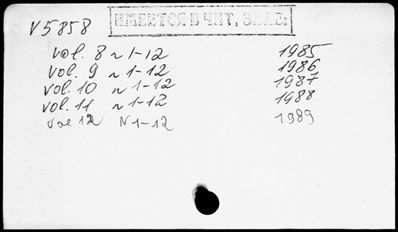 V5858
ИМЕЕТСЯ В ЧИТ. ЗАЛЕ:
vol. 8 N 1-12 1985
vol. 9 N 1-12 1986
vol. 10 N 1-12 1987
vol. 11 N 1-12 1988
vol 12 N 1-12 1989